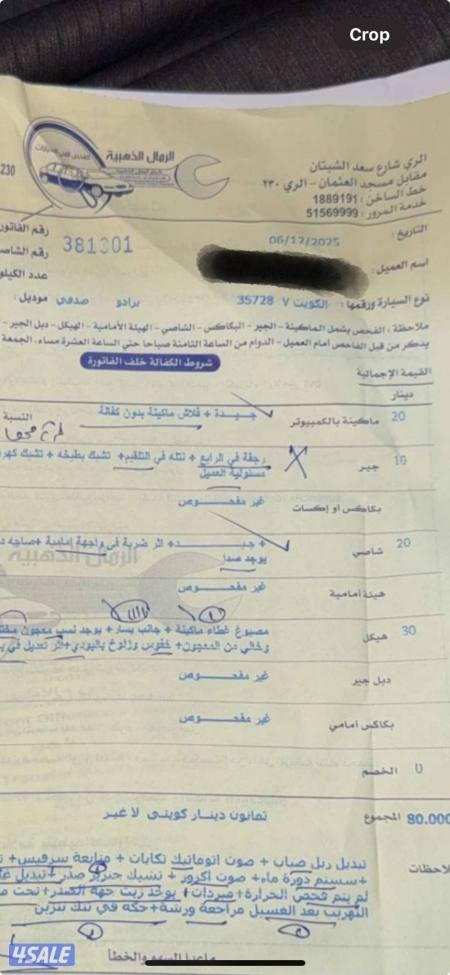 Crop
الرمال الذهبية
لفحص فني السيارات
الري شارع سعد الشيتان
مقابل مسجد العثمان - الري ٢٣٠
خط الساخن : 1889191
خدمة المرور : 51569999
230
التاريخ : 06/12/2025
رقم الفاتور
381301
رقم الشاص
اسم العميل :
عدد الكيلو
نوع السيارة ورقمها : الكويت ٧ 35728 برادو صدفي موديل :
ملاحظة : الفحص يشمل الماكينة - الجير - البكاكس - الشاصي - الهيئة الأمامية - الهيكل - دبل الجير -
يذكر من قبل الفاحص أمام العميل - الدوام من الساعة الثامنة صباحا حتى الساعة العشرة مساء، الجمعة
شروط الكفالة خلف الفاتورة
القيمة الإجمالية
دينار
20 ماكينة بالكمبيوتر جيـــدة + فلاش ماكينة بدون كفالة النسبة
10 جير رجفة في الرابع + نتله في التلقيم + تشبك بطيخه + تشيك كهر
مسئولية العميل
بكاكس او إكسات غير مفحـــوص
20 شاصي + جيـــد + اثر ضربة في واجهة إمامية + صاجه
يوجد صدا
هيئة أمامية غير مفحـــوص
30 هيكل مصبوغ غطاء ماكينة + جانب يسار + يوجد نسب معجون
وخالي من المعجون + خفوس وزلوخ بالبودي + اثر تعديل في
دبل جير غير مفحـــوص
بكاكس امامي غير مفحـــوص
0 الخصم
80.000 المجموع ثمانون دينار كويتى لا غير
لاحظات
تبديل ربل صباب + صوت اتوماتيك تكايات + متابعة سرفيس +
+ سستم دورة ماء + صوت اكزوز + تشيك جنزير صدر + تبديل
لم يتم فحص الحرارة + مبردات + يوجد زيت جهة الصدر + تحت
التهريب بعد الغسيل مراجعة ورشة + حكه في تنك بنزين
ماعدا السهو والخطأ
4SALE